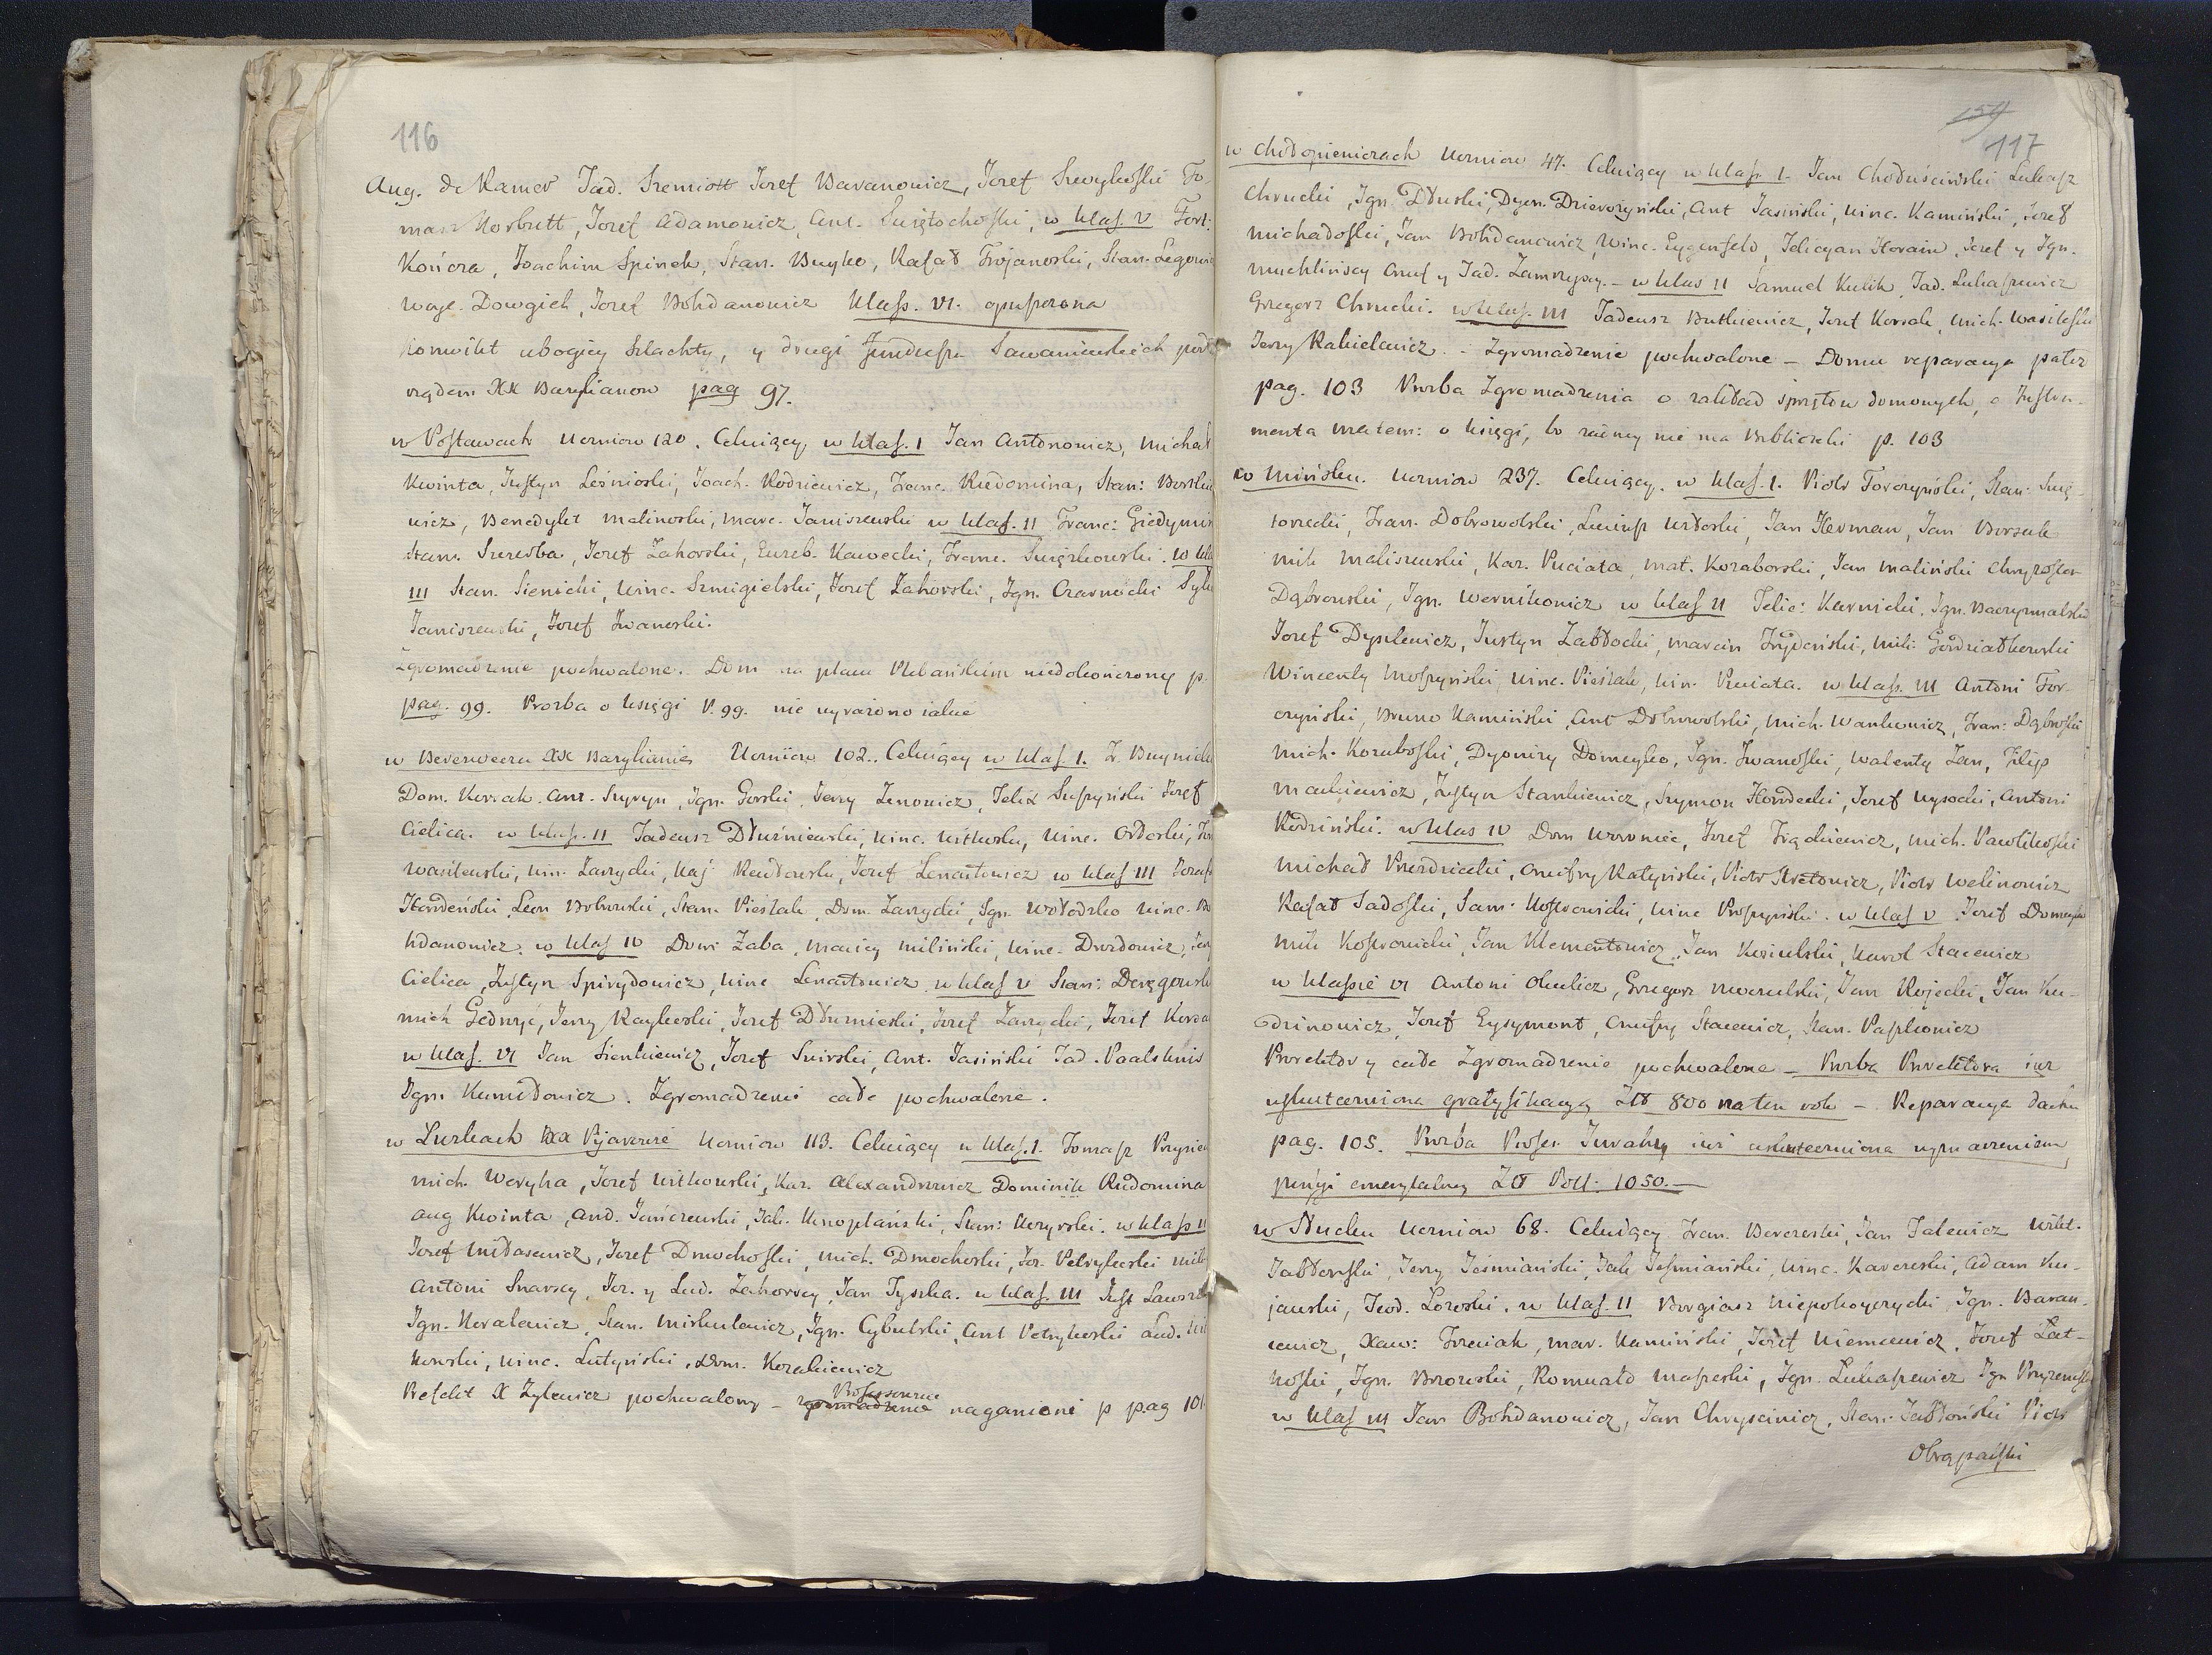 116
Aug. de Ramer Tad. Szemiott Jozef Baranowicz, Jozef Szwykoſki To-
masz Norbutt, Jozef Adamowicz, Ant. Swiętochoſki, w klaſ. V Fort:
Kończa, Joachim Spinek, Stan. Buyko, Rafał Trojanoſki, Stan. Legowi
Dowgieł, Jozef Bohdanowicz klaſs. VI. opuszczona
Konwikt ubogiey szlachty, y drugi funduszu Sawanieckich pod
rządem XX Bazylianow pag 97.
w Poſtawach Uczniow 120. Celuiący, w klaſ. I Jan Antonowicz, Michał
Kwinta, Juſtyn Leśnioſki, Joach. Rodziewicz, Franc. Rudomina, Stan:
wicz, Benedykt Malinoſki, Marc. Janiszewski w klaſ. II Franc: Giedymin
Stan. Szczerba, Jozef Zahorski, Euzeb. Kawecki, Franc. Swięzkowski. w kla
III Stan. Sienicki, Winc. Szmigielski, Jozef Zahorski, Ign. Czarnocki Sylw
Janiszewski, Jozef Iwanoſki.
Zgromadzenie pochwalone. Dom na placu Plebańskim niedokończony p.
pag. 99. Prozba o księgi P. 99. nie wyrażono iakie
w Berezweczu XX Bazylianie Uczniow 102. Celuiący w klaſ I.
Dom. Korsak. Ant. Szyryn, Ign. Gorski, Jerzy Zenowicz, Felix Suszyński Jozef
Cielica. w klaſ. II Tadeusz Dłuśniewski, Winc. Witkoski, Winc. Orłoski,
Wasilewski, Win. Zawrycki, Kaj. Rewkowski, Jozef Lenartowicz w klaſ III
Howdeński, Leon Bobrowski, Stan. Pieślak, Dom. Zawrycki, Ign. Wołodzko Winc. Bo
hdanowicz w klaſ IV Dom: Zaba, Maciey Miliński, Winc. Drozdowicz,
Cielica, Juſtyn Spirydowicz, Winc Lenartowicz w klaſ V Stan: Deręgowski
Mich Giedroyć, Jerzy Raykoſki, Jozef Dłumieski, Jozef Zawrycki, Jozef Korsak
w klaſ. VI Jan Sienkiewicz, Jozef Swirski, Ant. Jasiński Tad.
Ign. Kumidowicz. Zgromadzenie całe pochwalone.
w Łużkach XX Pijarowie Uczniow 113. Celuiący w klaſ. I. Tomasz
Mich. Weryha, Jozef Witkowski, Kar. Alexandrowicz Dominik Rudomina
Aug Kwinta, And. Janczewski, Jak. Konoplański, Stan: w klaſ II
Jozef Mitasewicz, Jozef Dmochoſki, Mich. Dmochoski, Joz. Petrykoski
Antoni Snarscy, Joz. y Lud. Zahorscy, Jan Tyszka. w klaſ. III
Ign. Kowalewicz, Stan. Miskulewicz, Ign. Cybulski, Ant Petrykoski Lud. Wit
kowski, Winc. Lutyński, Dom. Korakiewicz
Prefekt X Zylewicz pochwalony – Professorowie naganieni p pag 101
159
117
w Chołopieniczach Uczniow 47. Celuiący w klaſ. I. Jan Chodźciński Łukasz
Chrucki, Ign. Dłuski, Dyon. Dzierożyński, Ant Jasiński, Winc. Kamiński, Jozef
Michałoſki, Jan Bohdanowicz, Winc. Eygenfeld, Felicyan Horain, Jozef y Ign.
Muchlińscy Onuf y Tad. Zamrzyscy. – w klaſ II Samuel Kulik, Tad. Łukaszewicz
Grzegorz Chrucki. w klaſ. III Tadeusz Butkiewicz, Jozef Korsak, Mich. Wasileſki
Jerzy Rakielewicz. – Zgromadzenie pochwalone – Domu reparacya patrz
pag. 103 Prozba Zgromadzenia o zakład sprzętow domowych, o Inſtru-
menta matem: o księgi, bo żadney nie ma Biblioteki p. 103
w Mińsku. Uczniow 237. Celuiący. w klaſ. I. Piotr Toroczyński, Stan.
torzecki, Fran. Dobrowolski, Łucyusz Witoski, Jan Herman, Jan Borsuk
Mik Maliszewski, Kar. Puciata, Mat. Koraborski, Jan Maliński Chryzoſtom
Dąbrowski, Ign. Wernikowicz w klaſ II Felic: Karnicki, Ign. Baczyzmalski
Jozef Dyszlewicz, Justyn Zabłocki, Marcin Frydeński, Mik: Gordziałkowski
Wincenty Moszyński, Winc. Pieślak, Win. Puciata. w klaſs. III Antoni Tor-
czyński, Bruno Kamiński, Ant Dobrowolski, Mich. Wańkowicz, Fran: Dąbroſki
Mich. Koraboſki, Dyonizy Domeyko, Ign. Iwanoſki, Walenty Zan, Filip
Mackiewicz, Juſtyn Stankiewicz, Szymon Howdecki, Jozef Wysocki, Antoni
Rodziński. w klaſ IV Dom Woroniec, Jozef Frąckiewicz, Mich. Pawlikoſki
Michał Przezdziecki, Onufry Ratyński, Piotr Aretowicz, Piotr Welinowicz
Rafał Sadoſki, Sam. Koſtrowicki, Winc Proszyński. w klaſ V Jozef Domeyko
Mik Koſtrowicki, Jan Klementowicz, Jan Kozielski, Karol Stacewicz
w klaſsie VI Antoni Okulicz, Grzegorz Moczulski, Jan Rojecki, Jan Ku-
drinowicz, Jozef Eysymont, Onufry Stacewicz, Stan. Paszkowicz
Prorektor y całe Zgromadzenie pochwalone – Prozba Prorektora iuż
uskuteczniona gratyfikacyą Złł 800 na ten rok – Reparacya dachu
pag. 105. Prozba Profes. iuż uskuteczniona wyznaczeniem
pensyi emerytalney Złł Poll: 1050. –
w Słucku Uczniow 68. Celuiący Fran. Berezeski, Jan Falewicz Wikt.
Jabłoński, Jerzy Jeśmiański, Jak Jeſmiański, Winc. Kaczewski, Adam Ku-
jawski, Teod. Łozoski. w klaſ. II Borgiasz Niepokoyczycki, Ign. Baran-
cewicz, Xaw: Trzeciak, Mar. Kamiński, Jozef Niemcewicz, Jozef Łat-
koſki, Ign. Borowski, Romuald Maszeski, Ign. Łukaszewicz Ign
w klaſ III Jan Bohdanowicz, Jan Chryscinicz, Stan: Jabłoński Piotr
Obrąpalski